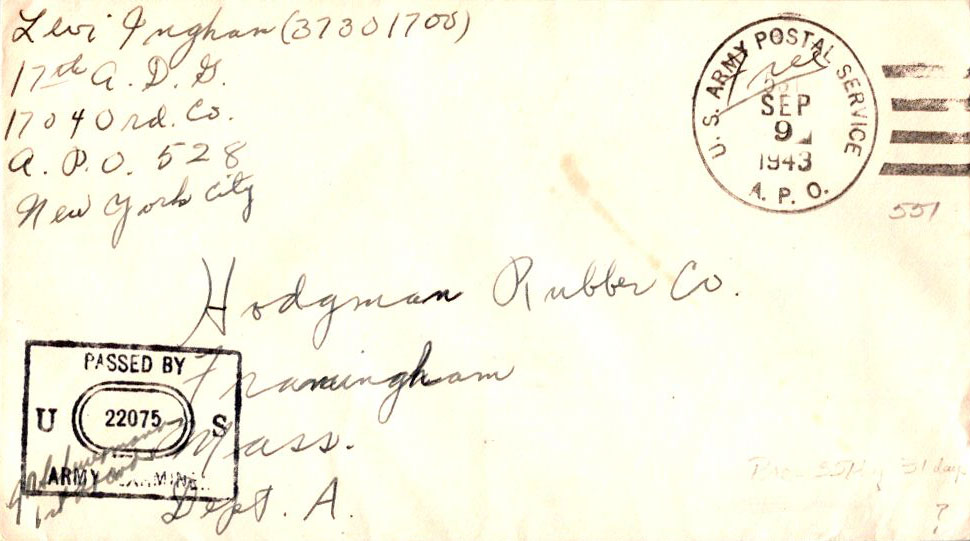 Levi Ingham (37301700)
17th A. D. G.
1704 Ord. Co.
A. P. O. 528
New York City
U. S. ARMY POSTAL SERVICE
Free
SEP
9
1943
A. P. O.
551
Hodgman Rubber Co.
Framingham
Mass.
Dept. A.
PASSED BY
U 22075 S
ARMY EXAMINER
31 days
?